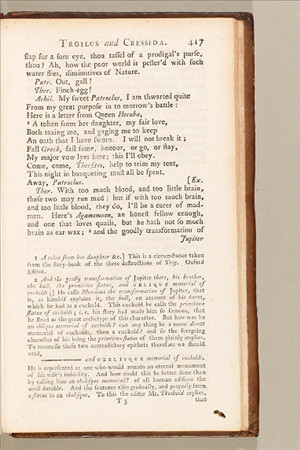 TROILUS and CRESSIDA. 417
flap for a sore eye, thou tassel of a prodigal's purse,
thou? Ah, how the poor world is pester'd with such
water-flies, diminutives of Nature.
Patr. Out, gall!
Ther. Finch-egg!
Achil. My sweet Patroclus, I am thwarted quite
From my great purpose in to morrow's battle:
Here is a letter from Queen Hecuba,
¹ A token from her daughter, my fair love,
Both taxing me, and gaging me to keep
An oath that I have sworn. I will not break it;
Fall Greek, fail fame, honour, or go, or stay,
My major vow lyes here; this I'll obey.
Come, come, Thersites, help to trim my tent,
This night in banqueting must all be spent.
Away, Patroclus. [Ex.
Ther. With too much blood, and too little brain,
these two may run mad: but if with too much brain,
and too little blood, they do, I'll be a curer of mad-
men. Here's Agamemnon, an honest fellow enough,
and one that loves quails, but he hath not so much
brain as ear-wax; ² and the goodly transformation of
Jupiter
1 A token from her daughter &c.] This is a circumstance taken
from the story-book of the three destructions of Troy. Oxford
Editor.
2 And the goodly transformation of Jupiter there, his brother,
the bull, the primitive statue, and OBLIQUE memorial of
cuckolds;] He calls Menelaus the transformation of Jupiter, that
is, as himself explains it, the bull, on account of his horns,
which he had as a cuckold. This cuckold he calls the primitive
statue of cuckolds; i. e. his story had made him so famous, that
he stood as the great archetype of this character. But how was he
an oblique memorial of cuckolds? can any thing be a more direct
memorial of cuckolds, than a cuckold? and so the foregoing
character of his being the primitive statue of them plainly implies.
To reconcile these two contradictory epithets therefore we should
read,
and OBELISQUE memorial of cuckolds.
He is represented as one who would remain an eternal monument
of his wife's infidelity. And how could this be better done than
by calling him an obelisque memorial? of all human edifices the
most durable. And the sentence rises gradually, and properly from
a statue to an obelisque. To this the editor Mr. Theobald replies,
T 5 that